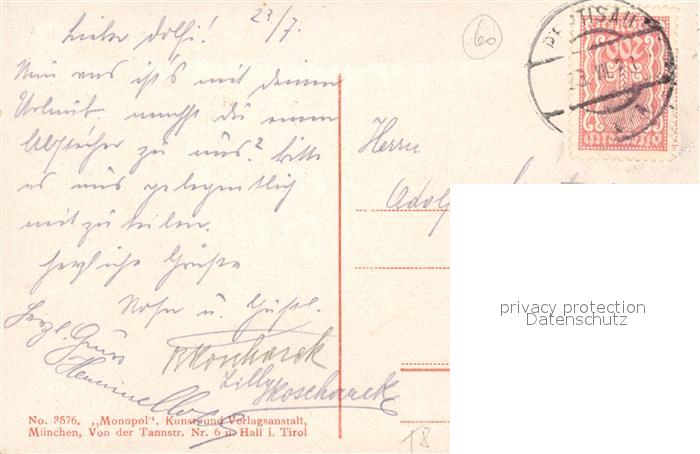 23/7.
60
Lieber Dolfi!
Nun was ist's mit deinem
Urlaub. machst du einen
Abstecher zu uns? bitte
es uns gelegentlich
mitzuteilen.
herzliche Grüße
u. Gustl.
Herzl. Gruss
Koscharek
Zilly Koscharek
Herrn
Adolf
PERTISAU
200
privacy protection
Datenschutz
No. 3576. „Monopol“, Kunst- und Verlagsanstalt,
München, Von der Tannstr. Nr. 6 u. Hall i. Tirol
T8